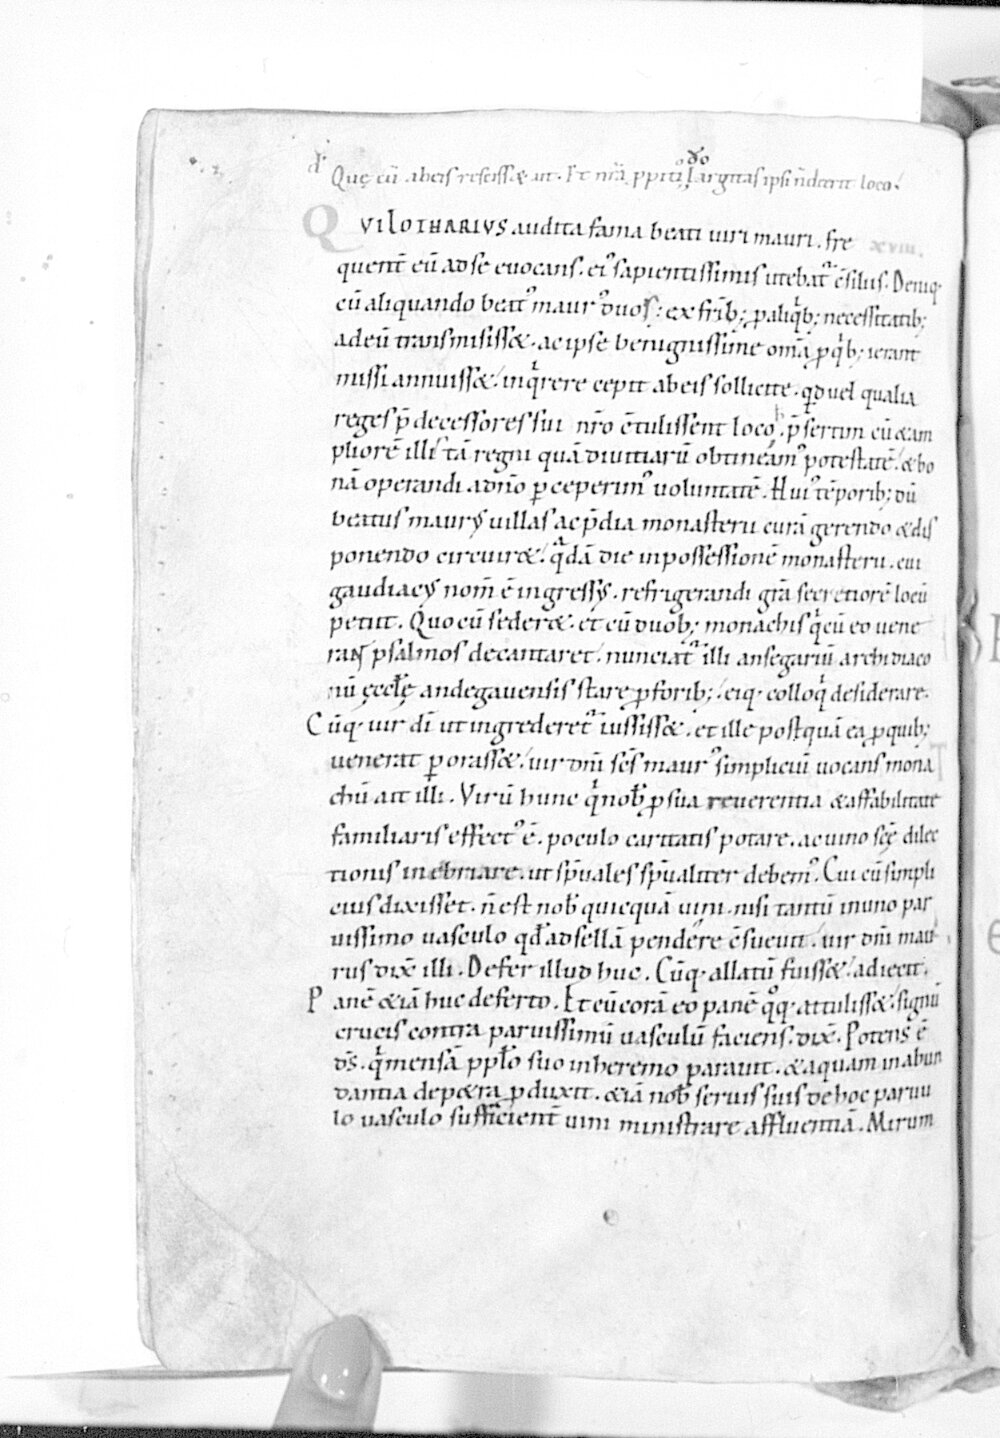 Quę cū ab eis rescissæ ait. Et nr̄a ppitio dō Largitas ipsi n̄ deerit loco.
QVI LOTHARIVS audita fama beati uiri mauri. fre
xviii.
quent̄ eū ad se euocans. ei᾿ sapientissimis utebat᾿ c̄siliis. Deniq;
cū aliquando beat᾿ maur᾿ duos; ex fr̄ib; p aliqͥb; necessitatib;
ad eū transmisissæ. ac ipse benignissime om̄ia p qͥb; ierant
missi annuissæ. inqͥrere cepit ab eis sollicite. qd uel qualia
reges p̄decessores sui nr̄o c̄tulissent loco. p̄sertim cū & am
pliorē illi tā regni quā diuitiarū obtineam᾿ potestatē. & bo
nā operandi a dn̄o pceperim᾿ voluntatē. Hui᾿ tēporib; dū
beatus maurus uillas ac p̄dia monasterii curā gerendo & dis
ponendo circuiræ. qͣdā die in possessionē monasterii. cui
gaudiacus nom̄ ē ingressus. refrigerandi gr̄a secretiorē locū
petiit. Quo cū sederæ. et cū duob; monachis qͥ cū eo uene
rant psalmos decantaret. nunciat᾿ illi ansegariū archidiaco
nū ęccl̄ę andegauensis stare p forib; eiq; colloqͥ desiderare.
Cūq; uir dī ut ingrederet᾿ iussissæ. et ille postquā ea p quib;
uenerat porassæ. uir dn̄i sc̄s maur᾿ simpliciū uocans mona
chū ait illi. Virū hunc qͥ nob̄ p sua reuerentia & affabilitate
familiaris effect᾿ ē. poculo caritatis potare. ac uino sc̄ę dilec
tionis inebriare. ut sp̄uales sp̄ualiter debem᾿. Cui cū simpli
cius dixisset. n̄ est nob̄ quicquā uini. nisi tantū in uno par
uissimo uasculo qd̄ ad sellā pendere c̄sueuit. uir dn̄i mau
rus dix̄ illi. Defer illud huc. Cūq; allatū fuissæ. adiecit.
Panē & iā huc deferto. Et cū corā eo panē qͦq; attulissæ. signū
crucis contra paruissimū uasculū faciens. dix̄. Potens ē
ds̄. qͥ mensā ppl̄o suo in heremo parauit. & aquam in abun
dantia de pæra pduxit. & iā nob̄ seruis suis de hoc paruu
lo uasculo sufficient̄ uini ministrare affluentiā. Mirum